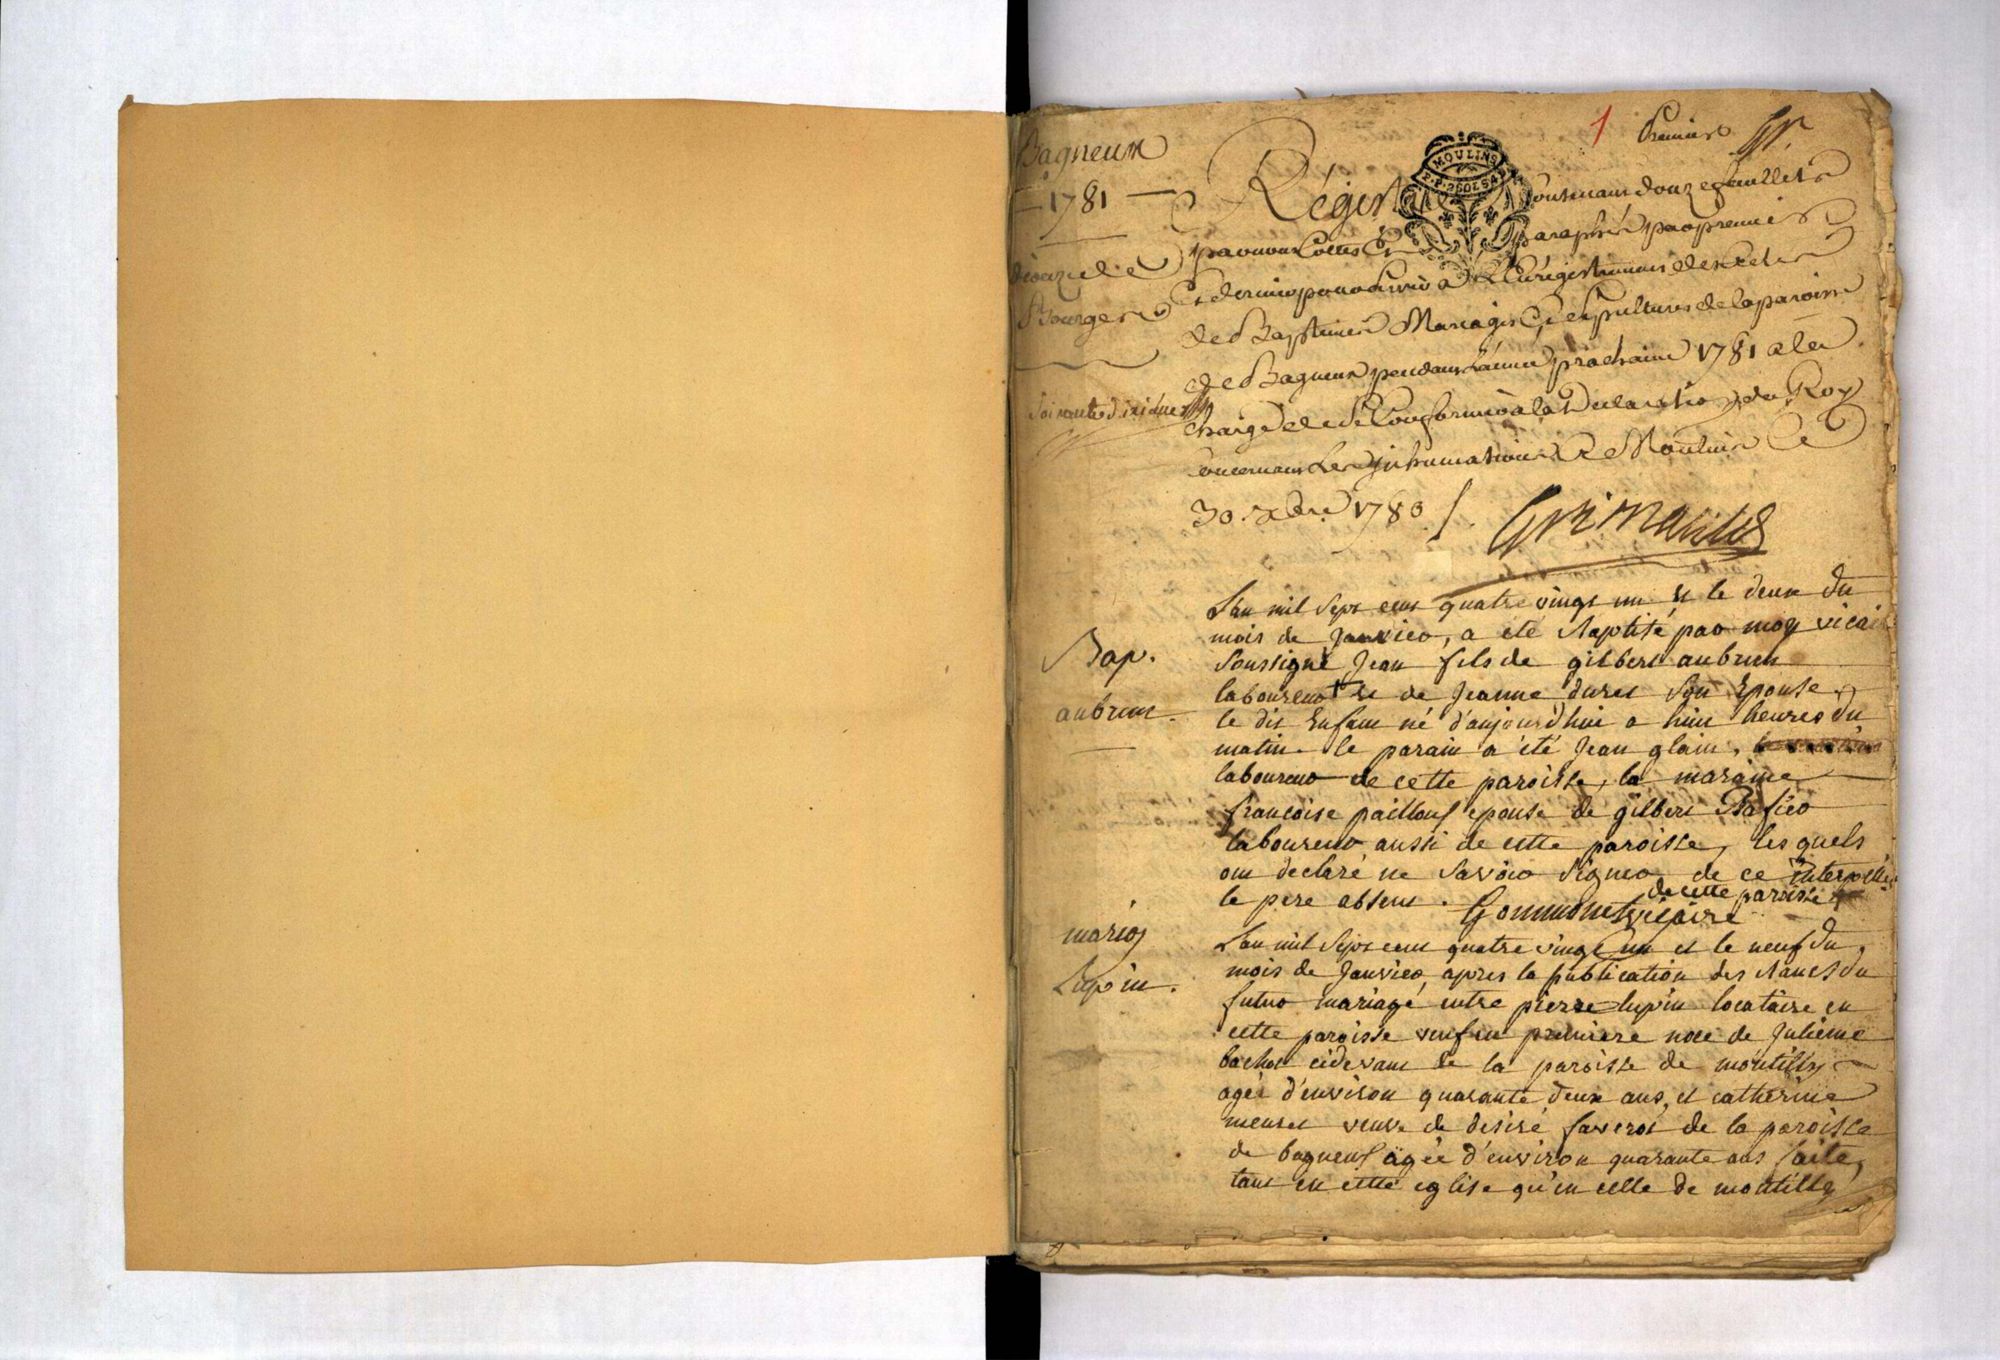 1 Premier
Bagneux
1781
diocèze de
Bourges
MOULINS
Régistre Contenant douze feuillets
par nous Cottés Et paraphés par premier
Et dernier pour servir a L'Enrégistrement des actes
de Baptêmes Mariages Et sepultures de la paroisse
de Bagneux pendant L'année prochaine 1781 a la
charge de se Conformer à la Déclaration du Roy
Concernant Les Inhumations a Moulins Ce
30 xbre 1780 /.
Grimauld
Bap.
aubrun
L'an mil sept cens quatre vingt un et le deux du
mois de Janvier, a été baptisé par moy vicaire
soussigné Jean fils de gilbert aubrun
laboureur et de Jeanne duret son Epouse
le dit Enfant né d'aujourd'hui a huit heures du
matin. le parain a été Jean glain,
laboureur de cette paroisse, la maraine
françoise pailloux epouse de gilbert
laboureur aussi de cette paroisse, les quels
ont declaré ne savoir signer de ce interpellés
le pere absent. de cette paroisse
vicaire
mariag
Lupin.
L'an mil sept cent quatre vingt un et le neuf du
mois de Janvier, apres la publication des bancs du
futur mariage entre pierre lupin locataire en
cette paroisse veuf en premiere noce de Julienne
bachot cidevant de la paroisse de montilly
agée d'environ quarante deux ans, et catherine
meuret veuve de desiré faverot de la paroisse
de bagneux agée d'environ quarante ans faite,
tant en cette eglise qu'en celle de montilly